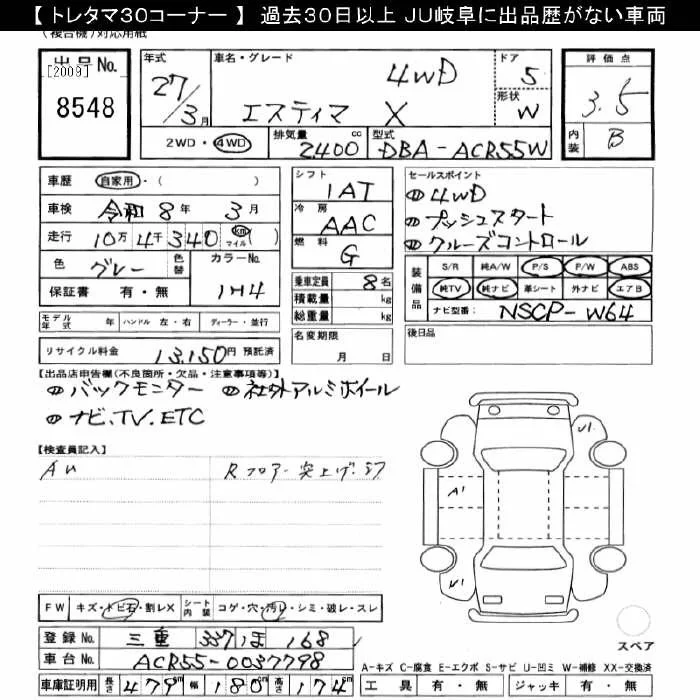 【 トレタマ30コーナー 】 過去30日以上 JU岐阜に出品歴がない車両
(複合機)対応用紙
出品No. [2009] 8548
年式 27/3月
車名・グレード 4WD エスティマ X
ドア 5
形状 W
評価点 3.5
内装 B
2WD・4WD
排気量 2400 cc
型式 DBA-ACR55W
車歴 自家用・( )
車検 令和8年 3月
走行 10万4千340 km マイル( )
色 グレー
色替
カラーNo. 1H4
保証書 有・無
シフト 1AT
冷房 AAC
燃料 G
乗車定員 8名
積載量 kg
総重量 kg
セールスポイント
4WD
プッシュスタート
クルーズコントロール
装備品
S/R 純A/W P/S P/W ABS
純TV 純ナビ 革シート 外ナビ エアB
ナビ型番: NSCP-W64
モデル年式 年 ハンドル 左・右 ディーラー・並行
名変期限 月 日
後日品
リサイクル料金 13,150円 預託済
【出品店申告欄(不良箇所・欠品・注意事項等)】
バックモニター 社外アルミホイール
ナビ、TV、ETC
【検査員記入】
Rフロアー突上げ
U1
A1
FW キズ・トビ石・割レX
シート内装 コゲ・穴・汚レ・シミ・破レ・スレ
スペア
登録No. 三重 337 ほ 168
車台No. ACR55-0037798
A−キズ C−腐食 E−エクボ S−サビ U−凹ミ W−補修 XX−交換済
車庫証明用 長さ 479cm 幅 180cm 高さ 174cm
工具 有・無 ジャッキ 有・無